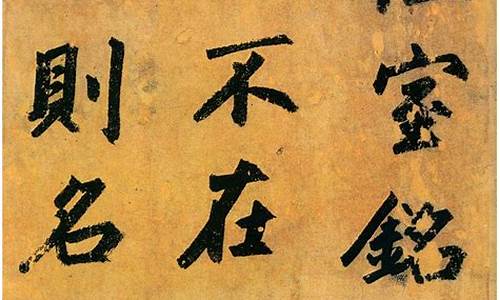 室銘
不在
則名